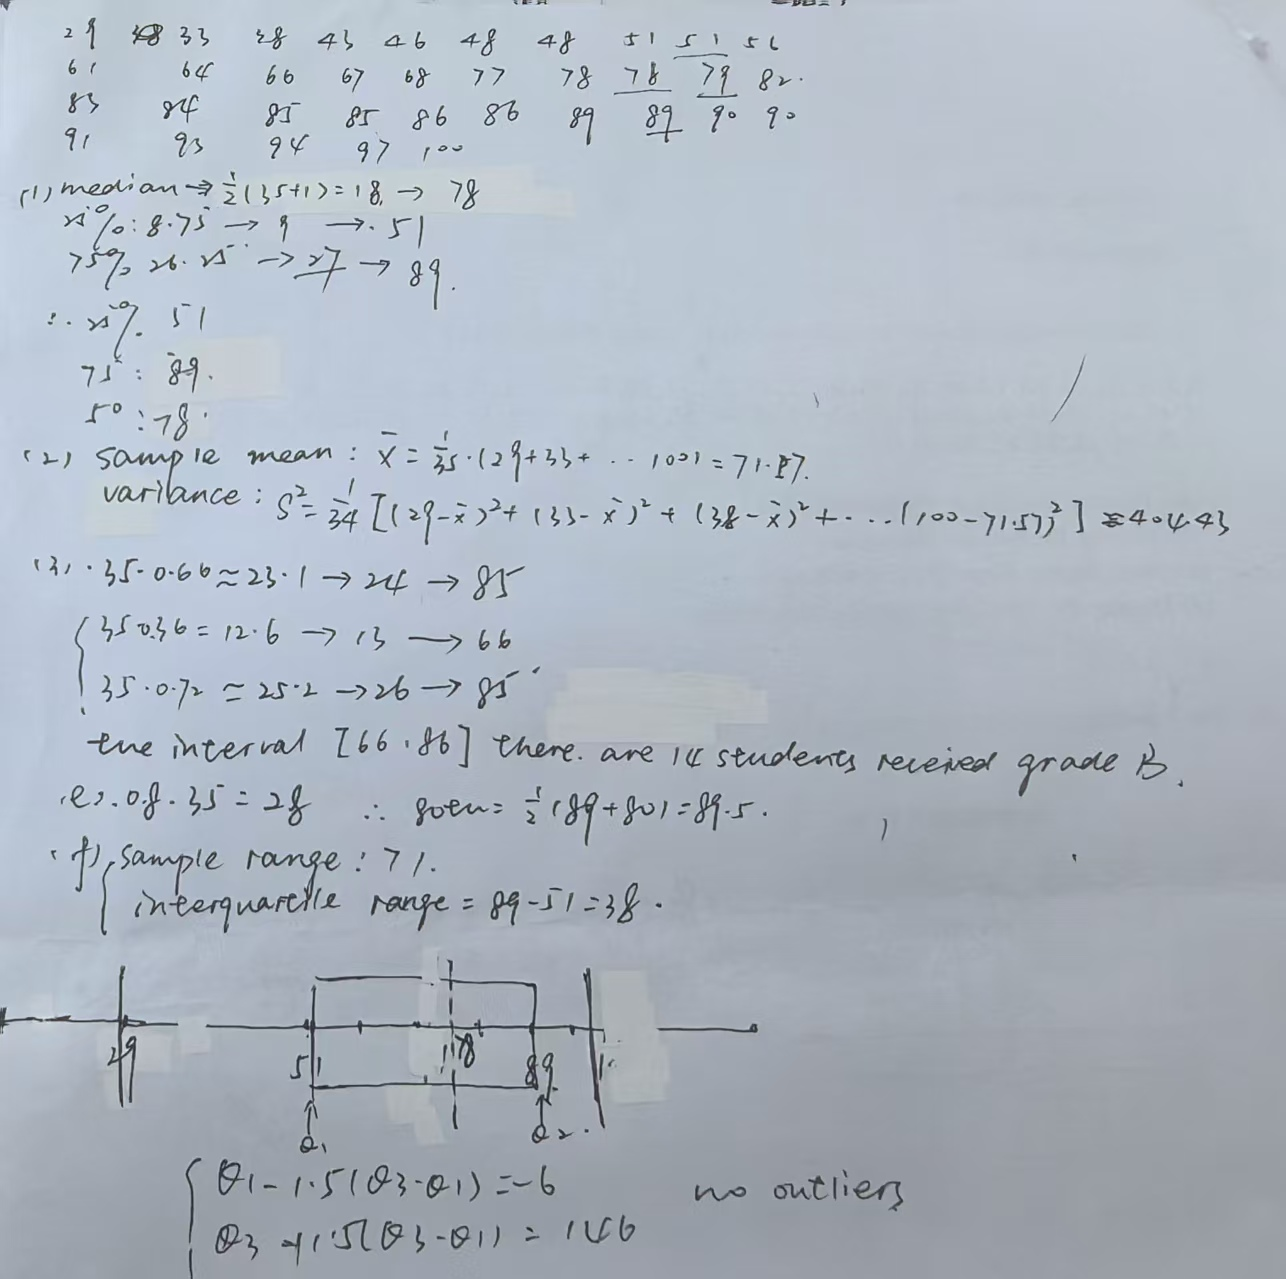 29 33 38 43 46 48 48 51 51 56
61 64 66 67 68 77 78 78 79 82.
83 84 85 85 86 86 89 89 90 90
91 93 94 97 100
(1) median → ½(35+1)=18. → 78
25%: 8.75 → 9 → . 51
75% 26.25 → 27 → 89.
∴ 25%. 51
75 : 89.
50 : 78.
(2) sample mean : x̄ = 1/35 · (29+33+ ... 100) = 71.57.
variance : S² = 1/34 [(29-x̄)² + (33-x̄)² + (38-x̄)² + ... (100-71.57)²] ≈ 404.43
(3) . 35·0.66 ≈ 23.1 → 24 → 85
35 0.36 = 12.6 → 13 → 66
35·0.72 ≈ 25.2 → 26 → 85
the interval [66.86] there. are 14 students received grade B.
(e). 0.8·35 = 28 ∴ 80th = ½(89+80) = 89.5.
(f) sample range : 71.
interquartile range = 89-51 = 38.
29 51 78 89
Q1 Q2.
Q1 - 1.5(Q3-Q1) = -6 no outliers
Q3 + 1.5(Q3-Q1) = 146